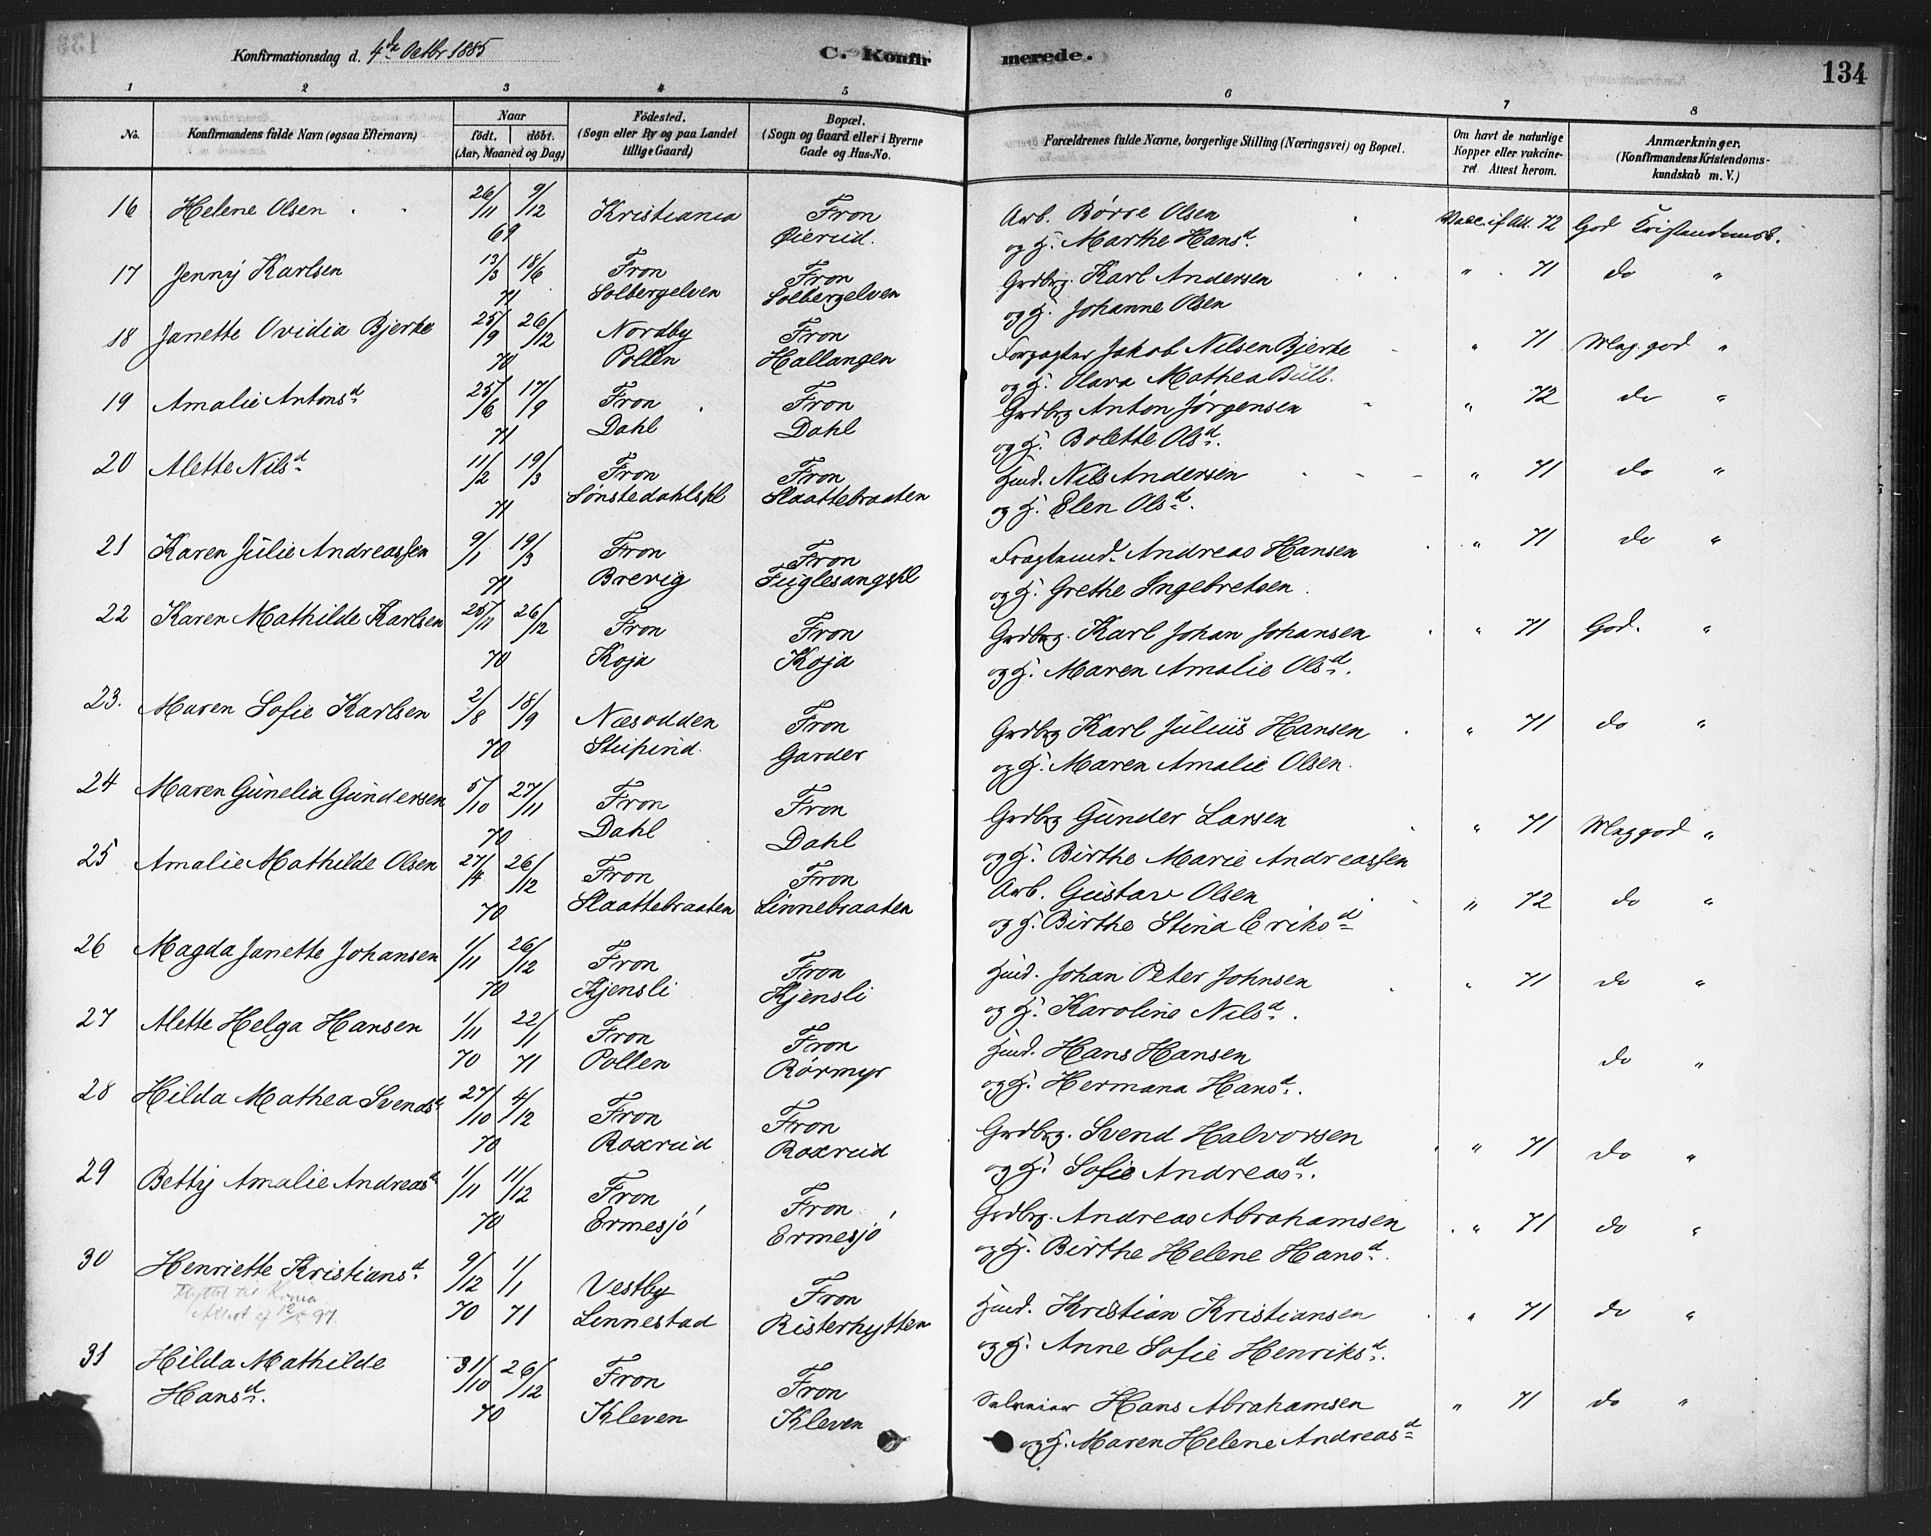 Konfirmationsdag d. 4de Octbr 1885
C. Konfirmerede.
134
1 2 3 4 5 6 7 8
No.
Konfirmandens fulde Navn (ogsaa Efternavn)
Naar
födt. döbt.
(Aar, Maaned og Dag)
Födested.
(Sogn eller By og paa Landet tillige Gaard)
Bopæl.
(Sogn og Gaard eller i Byerne Gade og Hus-No.
Forældrenes fulde Navne, borgerlige Stilling (Næringsvei) og Bopæl.
Om havt de naturlige Kopper eller vakcineret Attest herom.
Anmærkninger.
(Konfirmandens Kristendomskundskab m. V.)
16 Helene Olsen 26/11 9/12 Kristiania Fron Arb. Børre Olsen Vacc. if Att. 72 God Kristendomsk.
69 Øierud. og H. Marthe Hansd.
17 Jenny Karlsen 13/3 18/6 Fron Fron Grdbrg. Karl Andersen " 71 do "
71 Solbergelven Solbergelven og H. Johanne Olsen
18 Janette Ovidia Bjerke 25/9 26/12 Nordby Fron Forpagter Jakob Nilsen Bjerke " 71 Meg. god "
70 Pollen Hallangen og H. Olava Mathea Bull.
19 Amalie Antonsd. 25/6 17/9 Fron Fron Grdbrg Anton Jørgensen " 72 do "
71 Dahl Dahl og H. Bolette Olsd.
20 Alette Nilsd. 11/2 19/3 Fron Fron Husd. Nils Andersen " 71 do "
71 Sønstedahlspl Slaattebraaten og H. Elen Olsd.
21 Karen Julie Andreassen 9/1 19/3 Fron Fron Fragtemd. Andreas Hansen " 71 do "
71 Brevig Fuglesangspl og H. Grethe Ingebretsen.
22 Karen Mathilde Karlsen 25/11 26/12 Fron Fron Grdbrg. Karl Johan Johansen " 71 God. "
70 Koja Koja og H. Maren Amalie Olsd.
23. Maren Sofie Karlsen 2/8 18/9 Næsodden Fron Grdbrg Karl Julius Hansen " 71 do "
70 Garder og H. Maren Amalie Olsen.
24 Maren Gunelia Gundersen 5/10 27/11 Fron Fron Grdbrg Gunder Larsen " 71 Meg god "
70 Dahl Dahl og H. Birthe Marie Andreassen
25 Amalie Mathilde Olsen 27/4 26/12 Fron Fron Arb. Gustav Olsen " 72 do "
70 Slaattebraaten Linnebraaten og H. Birthe Stina Eriksd
26 Magda Janette Johansen 1/11 26/12 Fron Fron Husd. Johan Peter Johnsen " 71 do "
70 Kjensli Kjensli og H. Karoline Nilsd.
27 Alette Helga Hansen 1/11 22/1 Fron Fron Husd. Hans Hansen do "
70 71 Pollen Rørmyr og H. Hermana Hansd.
28 Hilda Mathea Svendsd 27/10 4/12 Fron Fron Grdbrg. Svend Halvorsen " 71 do "
70 Roxrud Roxrud og H. Sofie Andreasd.
29 Betty Amalie Andreasd 1/11 11/12 Fron Fron Grdbrg. Andreas Abrahamsen " 71 do "
70 Ermesjö Ermesjö og H. Birthe Helene Hansd.
30 Henriette Kristiansd 9/12 1/1 Vestby Fron Husd. Kristian Kristiansen " 71 do "
Flyttet til Krnia. 70 71 Linnestad Risterhytten og H. Anne Sofie Henriksd.
Attest af 97.
31 Hilda Mathilde 31/10 26/12 Fron Fron Selveier Hans Abrahamsen " 71 do "
Hansd. 70 Kleven Kleven og H. Maren Helene Andreasd